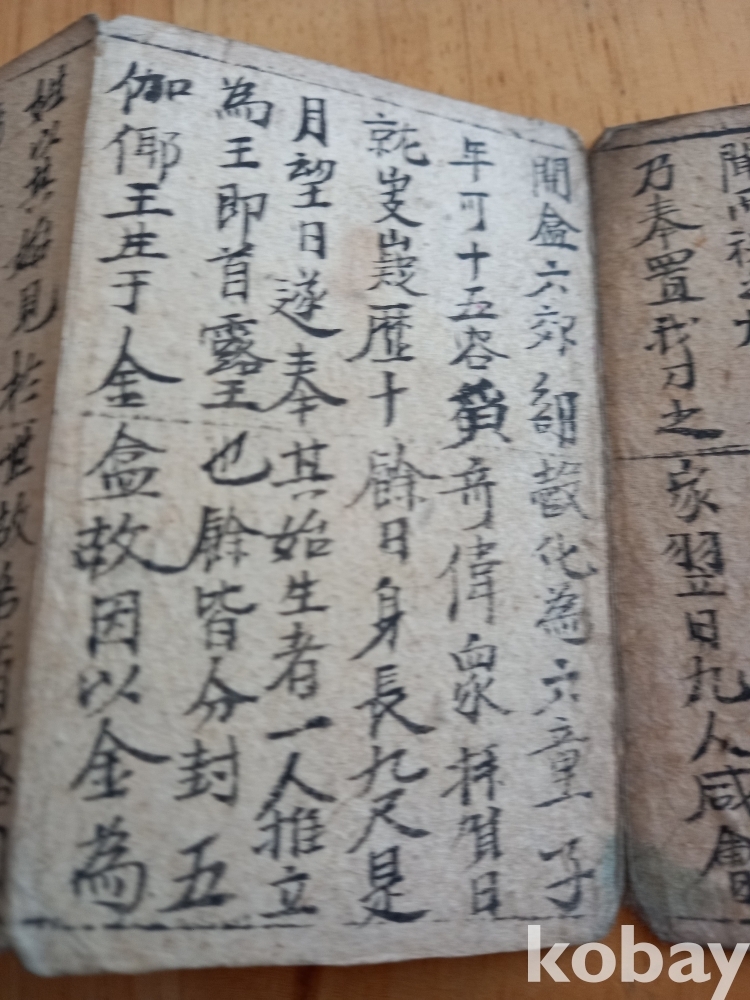 乃奉置我刀之家翌日九人咸會
開盒六卵殼化為六童子
年可十五容貌奇偉衆拜賀日
就岐嶷歷十餘日身長九尺是
月望日遂奉其始生者一人推立
為王即首露王也餘皆分封五
伽倻王生于金盒故因以金為
姓以其始見於世故為首露
kobay